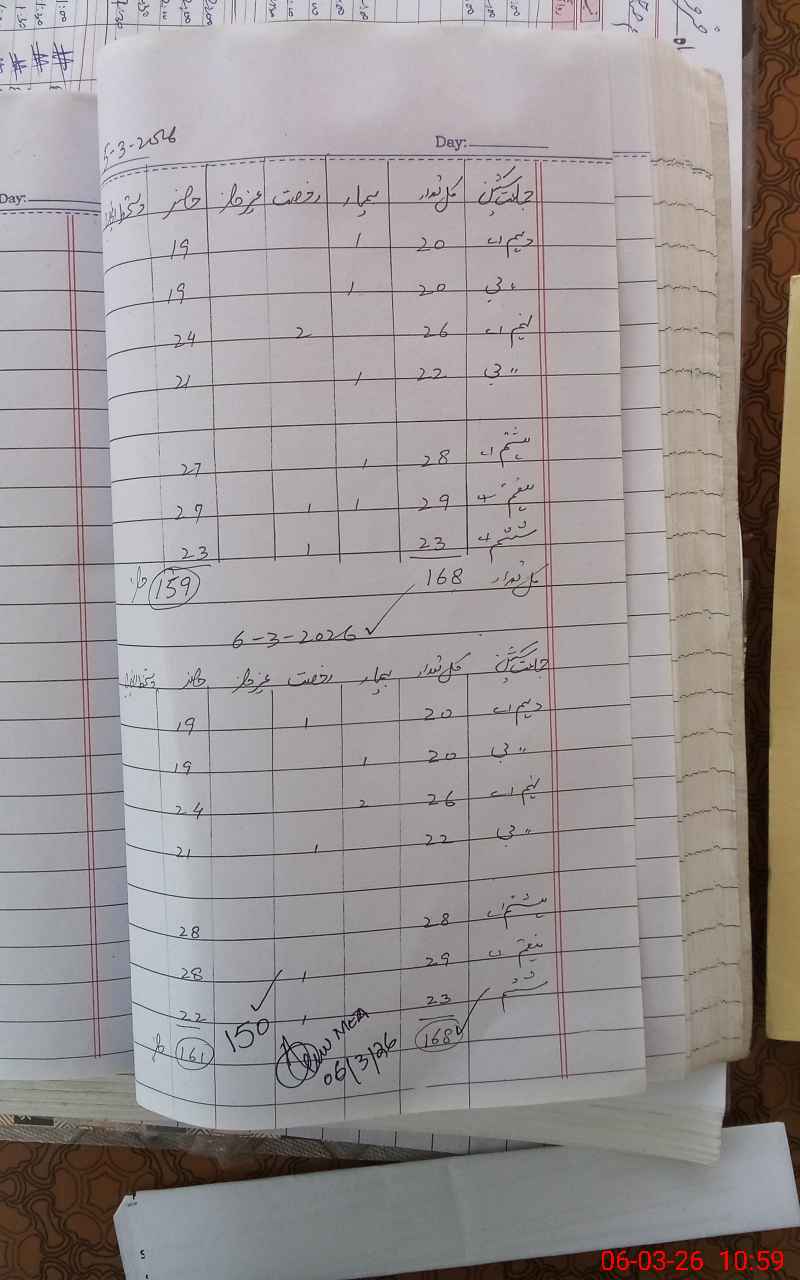 Day:
5-3-2026
جماعت سیکشن کل تعداد بیمار رخصت غیر حاضر حاضر
دہم اے 20 1 19
〃 بی 20 1 19
نہم اے 26 2 24
〃 بی 22 1 21
ہشتم اے 28 1 27
ہفتم اے 29 1 1 27
ششم اے 23 1 23
کل تعداد 168 159 حاضر
6-3-2026
جماعت سیکشن کل تعداد بیمار رخصت غیر حاضر حاضر
دہم اے 20 1 19
〃 بی 20 1 19
نہم اے 26 2 24
〃 بی 22 1 21
ہشتم اے 28 28
ہفتم اے 29 1 28
ششم 23 1 22
168 150 161 حاضر
MEA
06/3/26
Day:
06-03-26 10:59